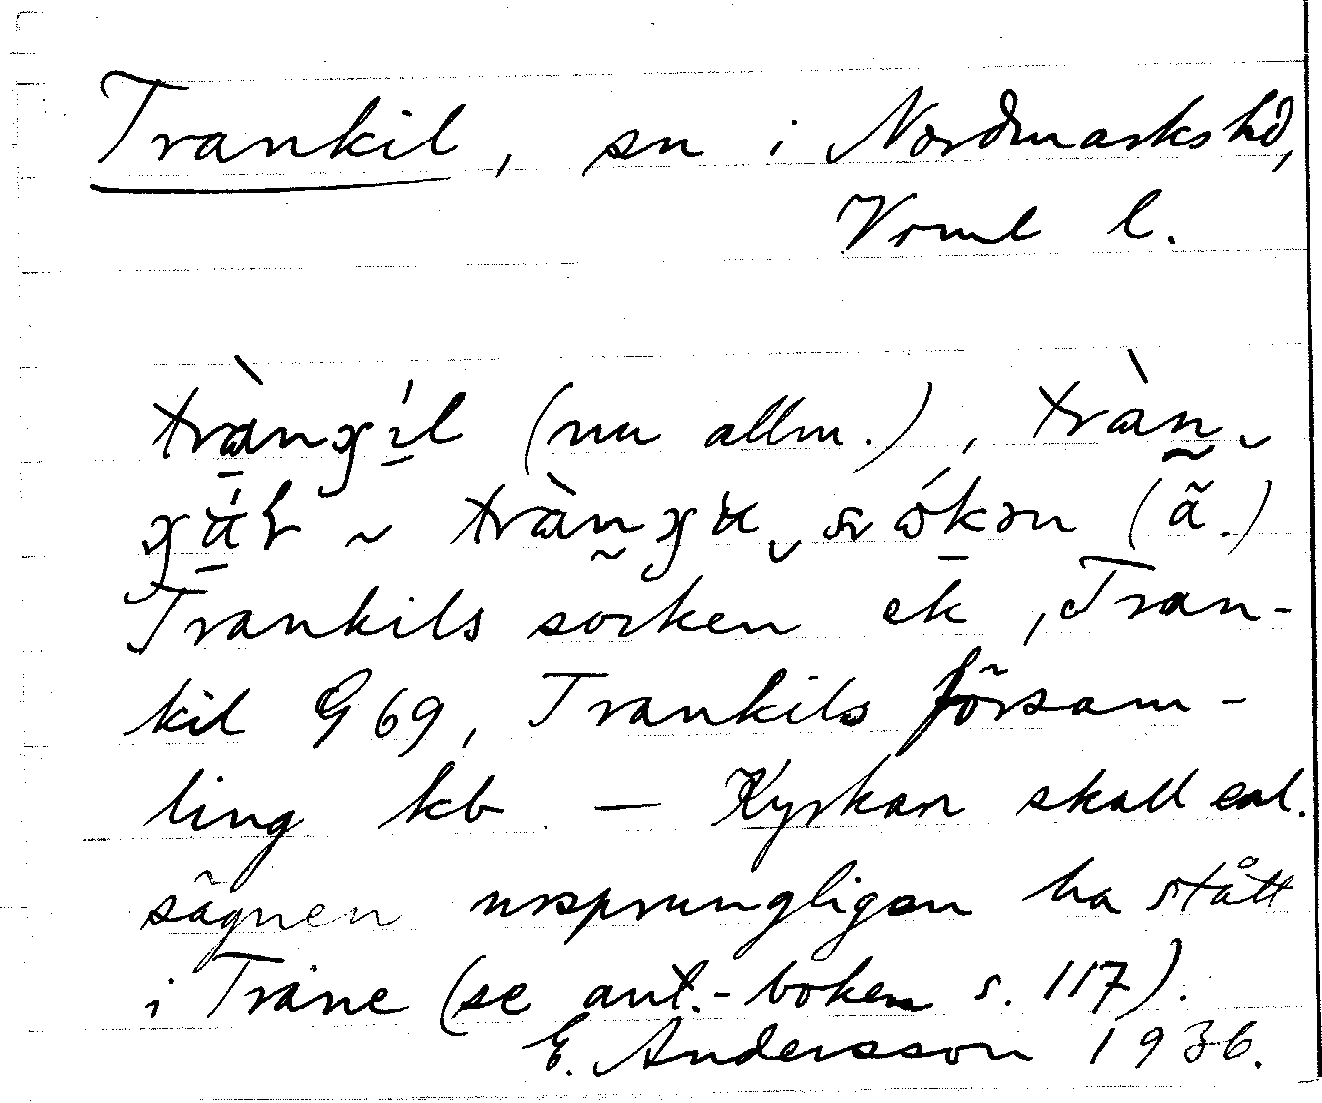 Trankil, sn i Nordmarks hd,
Vrml l.
(nu allm.),
(ä.)
Trankils socken ek, Tran-
kil G 69, Trankils försam-
ling kb — Kyrkan skall enl.
sägnen ursprungligen ha stått
i Träne (se ant.-boken s. 117).
E. Andersson 1936.